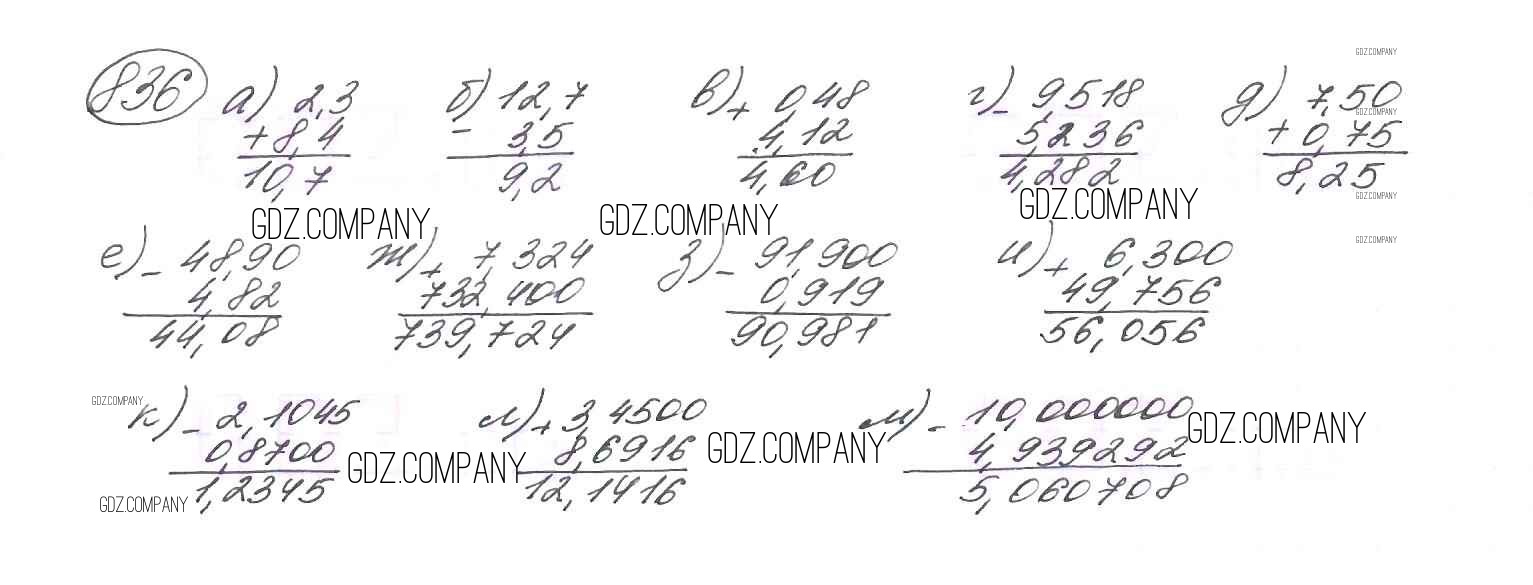 GDZ.COMPANY
836 а) 2,3 б) 12,7 в) + 0,48 г) - 9,518 д) 7,50
+ 8,4 - 3,5 4,12 5,236 + 0,75
10,7 9,2 4,60 4,282 8,25
GDZ.COMPANY
GDZ.COMPANY GDZ.COMPANY GDZ.COMPANY GDZ.COMPANY
GDZ.COMPANY
е) - 48,90 ж) + 7,324 з) - 91,900 и) + 6,300
4,82 732,400 0,919 49,756
44,08 739,724 90,981 56,056
GDZ.COMPANY
к) - 2,1045 л) + 3,4500 м) - 10,000000 GDZ.COMPANY
0,8700 GDZ.COMPANY 8,6916 GDZ.COMPANY 4,939292
GDZ.COMPANY 1,2345 12,1416 5,060708